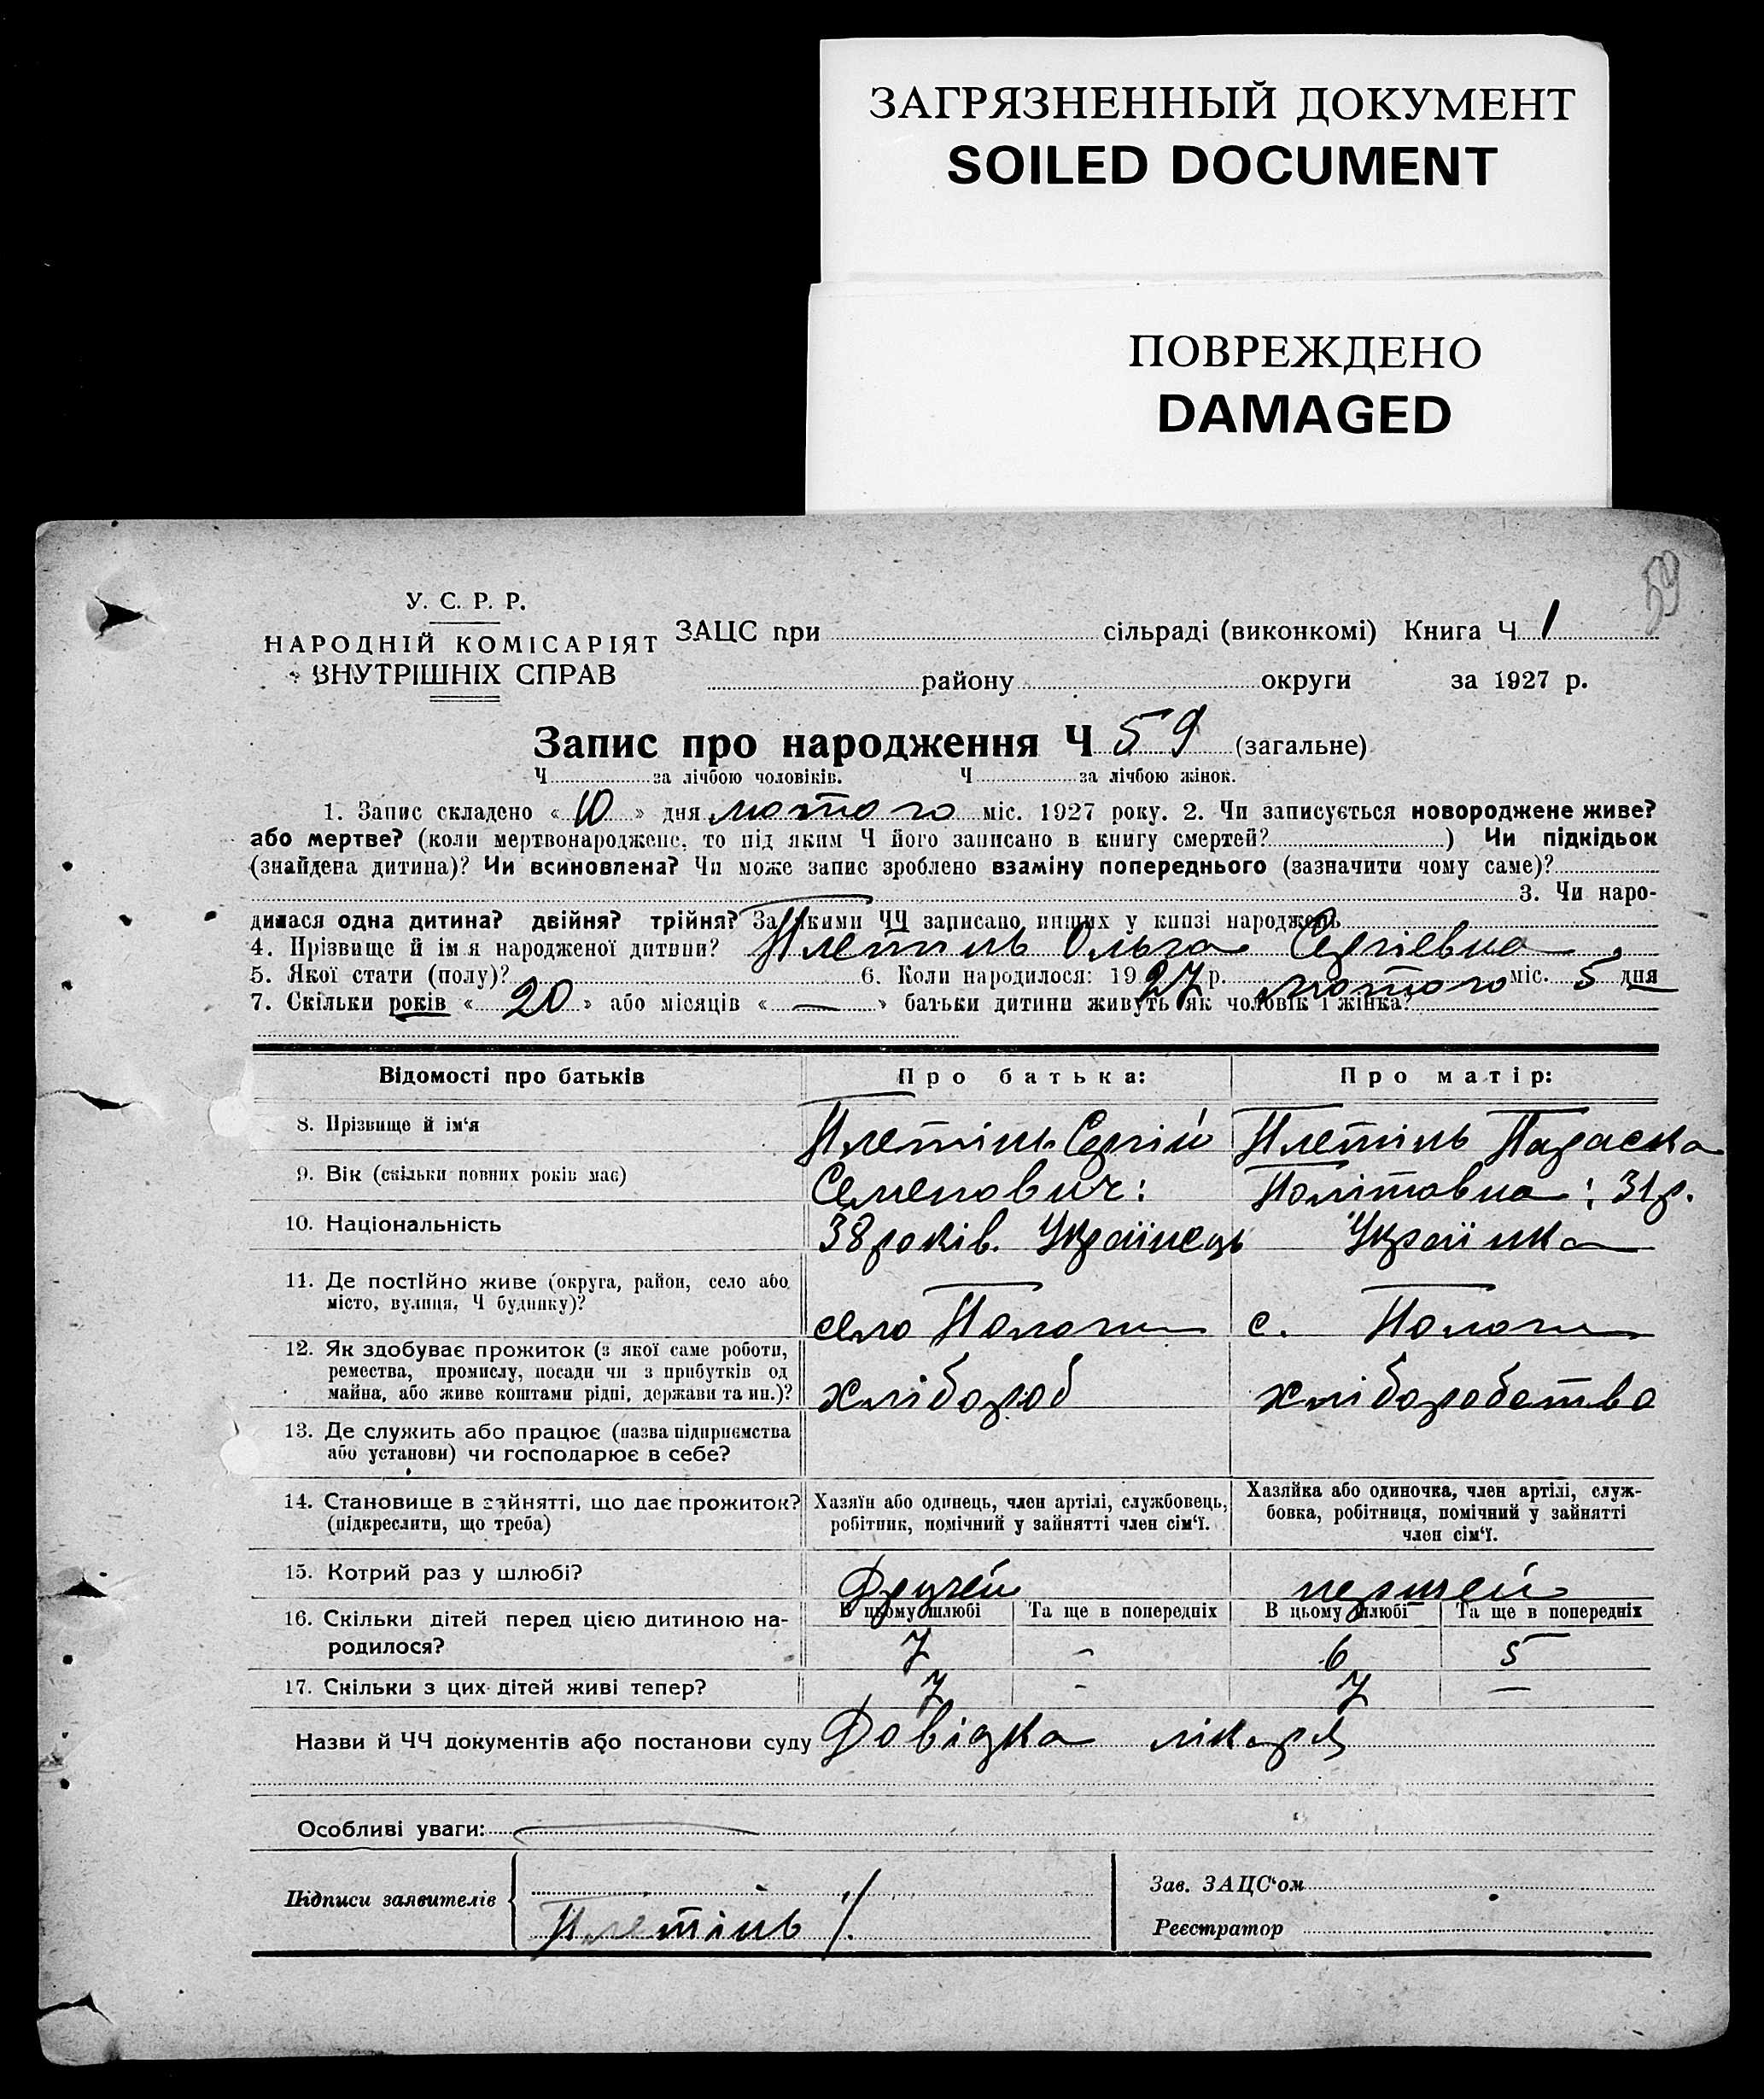 ЗАГРЯЗНЕННЫЙ ДОКУМЕНТ
SOILED DOCUMENT
ПОВРЕЖДЕНО
DAMAGED
59
У. С. Р. Р.
НАРОДНІЙ КОМІСАРІЯТ
ВНУТРІШНІХ СПРАВ
ЗАЦС при сільраді (виконкомі) Книга Ч 1
району округи за 1927 р.
Запис про народження Ч 59 (загальне)
Ч за лічбою чоловіків. Ч за лічбою жінок.
1. Запис складено « 10 » дня лютого міс. 1927 року. 2. Чи записується новороджене живе?
або мертве? (коли мертвонароджене, то під яким Ч його записано в книгу смертей? ) Чи підкідьок
(знайдена дитина)? Чи всиновлена? Чи може запис зроблено взаміну попереднього (зазначити чому саме)?
3. Чи наро-
дилася одна дитина? двійня? трійня? За якими ЧЧ записано инших у книзі народжень
4. Прізвище й ім'я народженої дитини? Плетінь Ольга Сергіевна
5. Якої стати (полу)? 6. Коли народилося: 1927 р. лютого міс. 5 дня
7. Скільки років « 20 » або місяців « — » батьки дитини живуть як чоловік і жінка?
Відомості про батьків
Про батька:
Про матір:
8. Прізвище й ім'я
Плетінь Сергій
Плетінь Параска
9. Вік (скільки повних років має)
Семенович:
31р.
10. Національність
38 років. Українець
Українка
11. Де постійно живе (округа, район, село або
місто, вулиця, Ч будинку)?
село Пологи
с. Пологи
12. Як здобуває прожиток (з якої саме роботи,
ремества, промислу, посади чи з прибутків од
майна, або живе коштами рідні, держави та ин.)?
хлібороб
хліборобство
13. Де служить або працює (назва підприємства
або установи) чи господарює в себе?
14. Становище в зайнятті, що дає прожиток?
(підкреслити, що треба)
Хазяїн або одинець, член артілі, службовець,
робітник, помічний у зайнятті член сім'ї.
Хазяйка або одиночка, член артілі, служ-
бовка, робітниця, помічний у зайнятті
член сім'ї.
15. Котрий раз у шлюбі?
Другей
першей
16. Скільки дітей перед цією дитиною на-
родилося?
В цьому шлюбі Та ще в попередніх В цьому шлюбі Та ще в попередніх
7 - 6 5
17. Скільки з цих дітей живі тепер?
7 - 7 —
Назви й ЧЧ документів або постанови суду Довідка лікаря
Особливі уваги:
Підписи заявителів
Плетінь
Зав. ЗАЦС'ом
Реєстратор